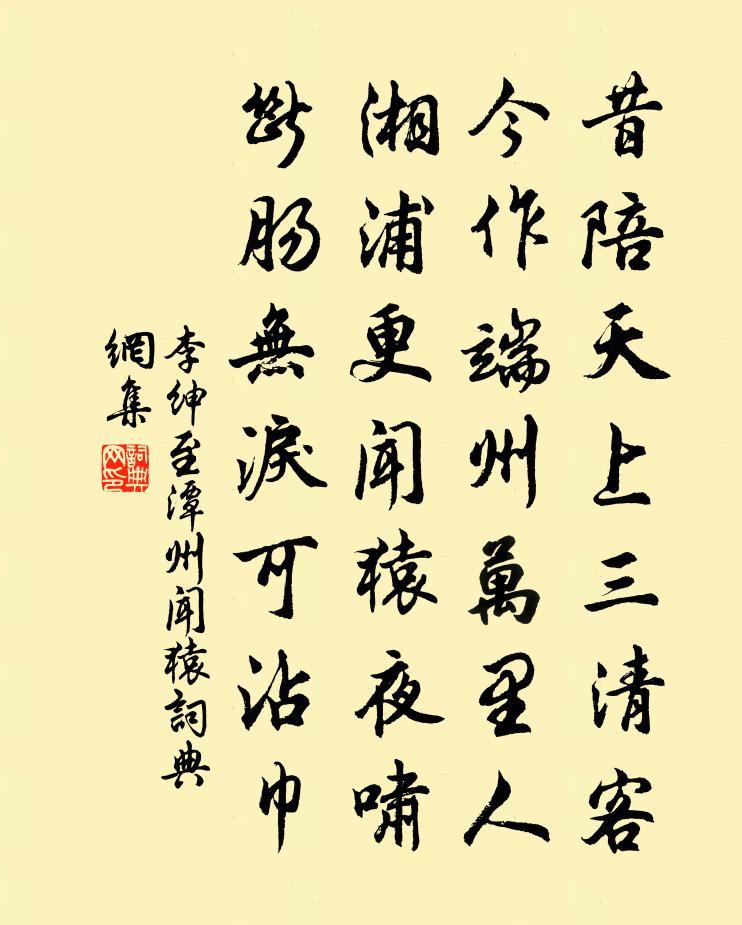 昔陪天上三清客
今作端州萬里人
湘浦更聞猿夜嘯
斷腸無淚可沾巾
李紳至潭州聞猿詞典
網集
詞典
网印